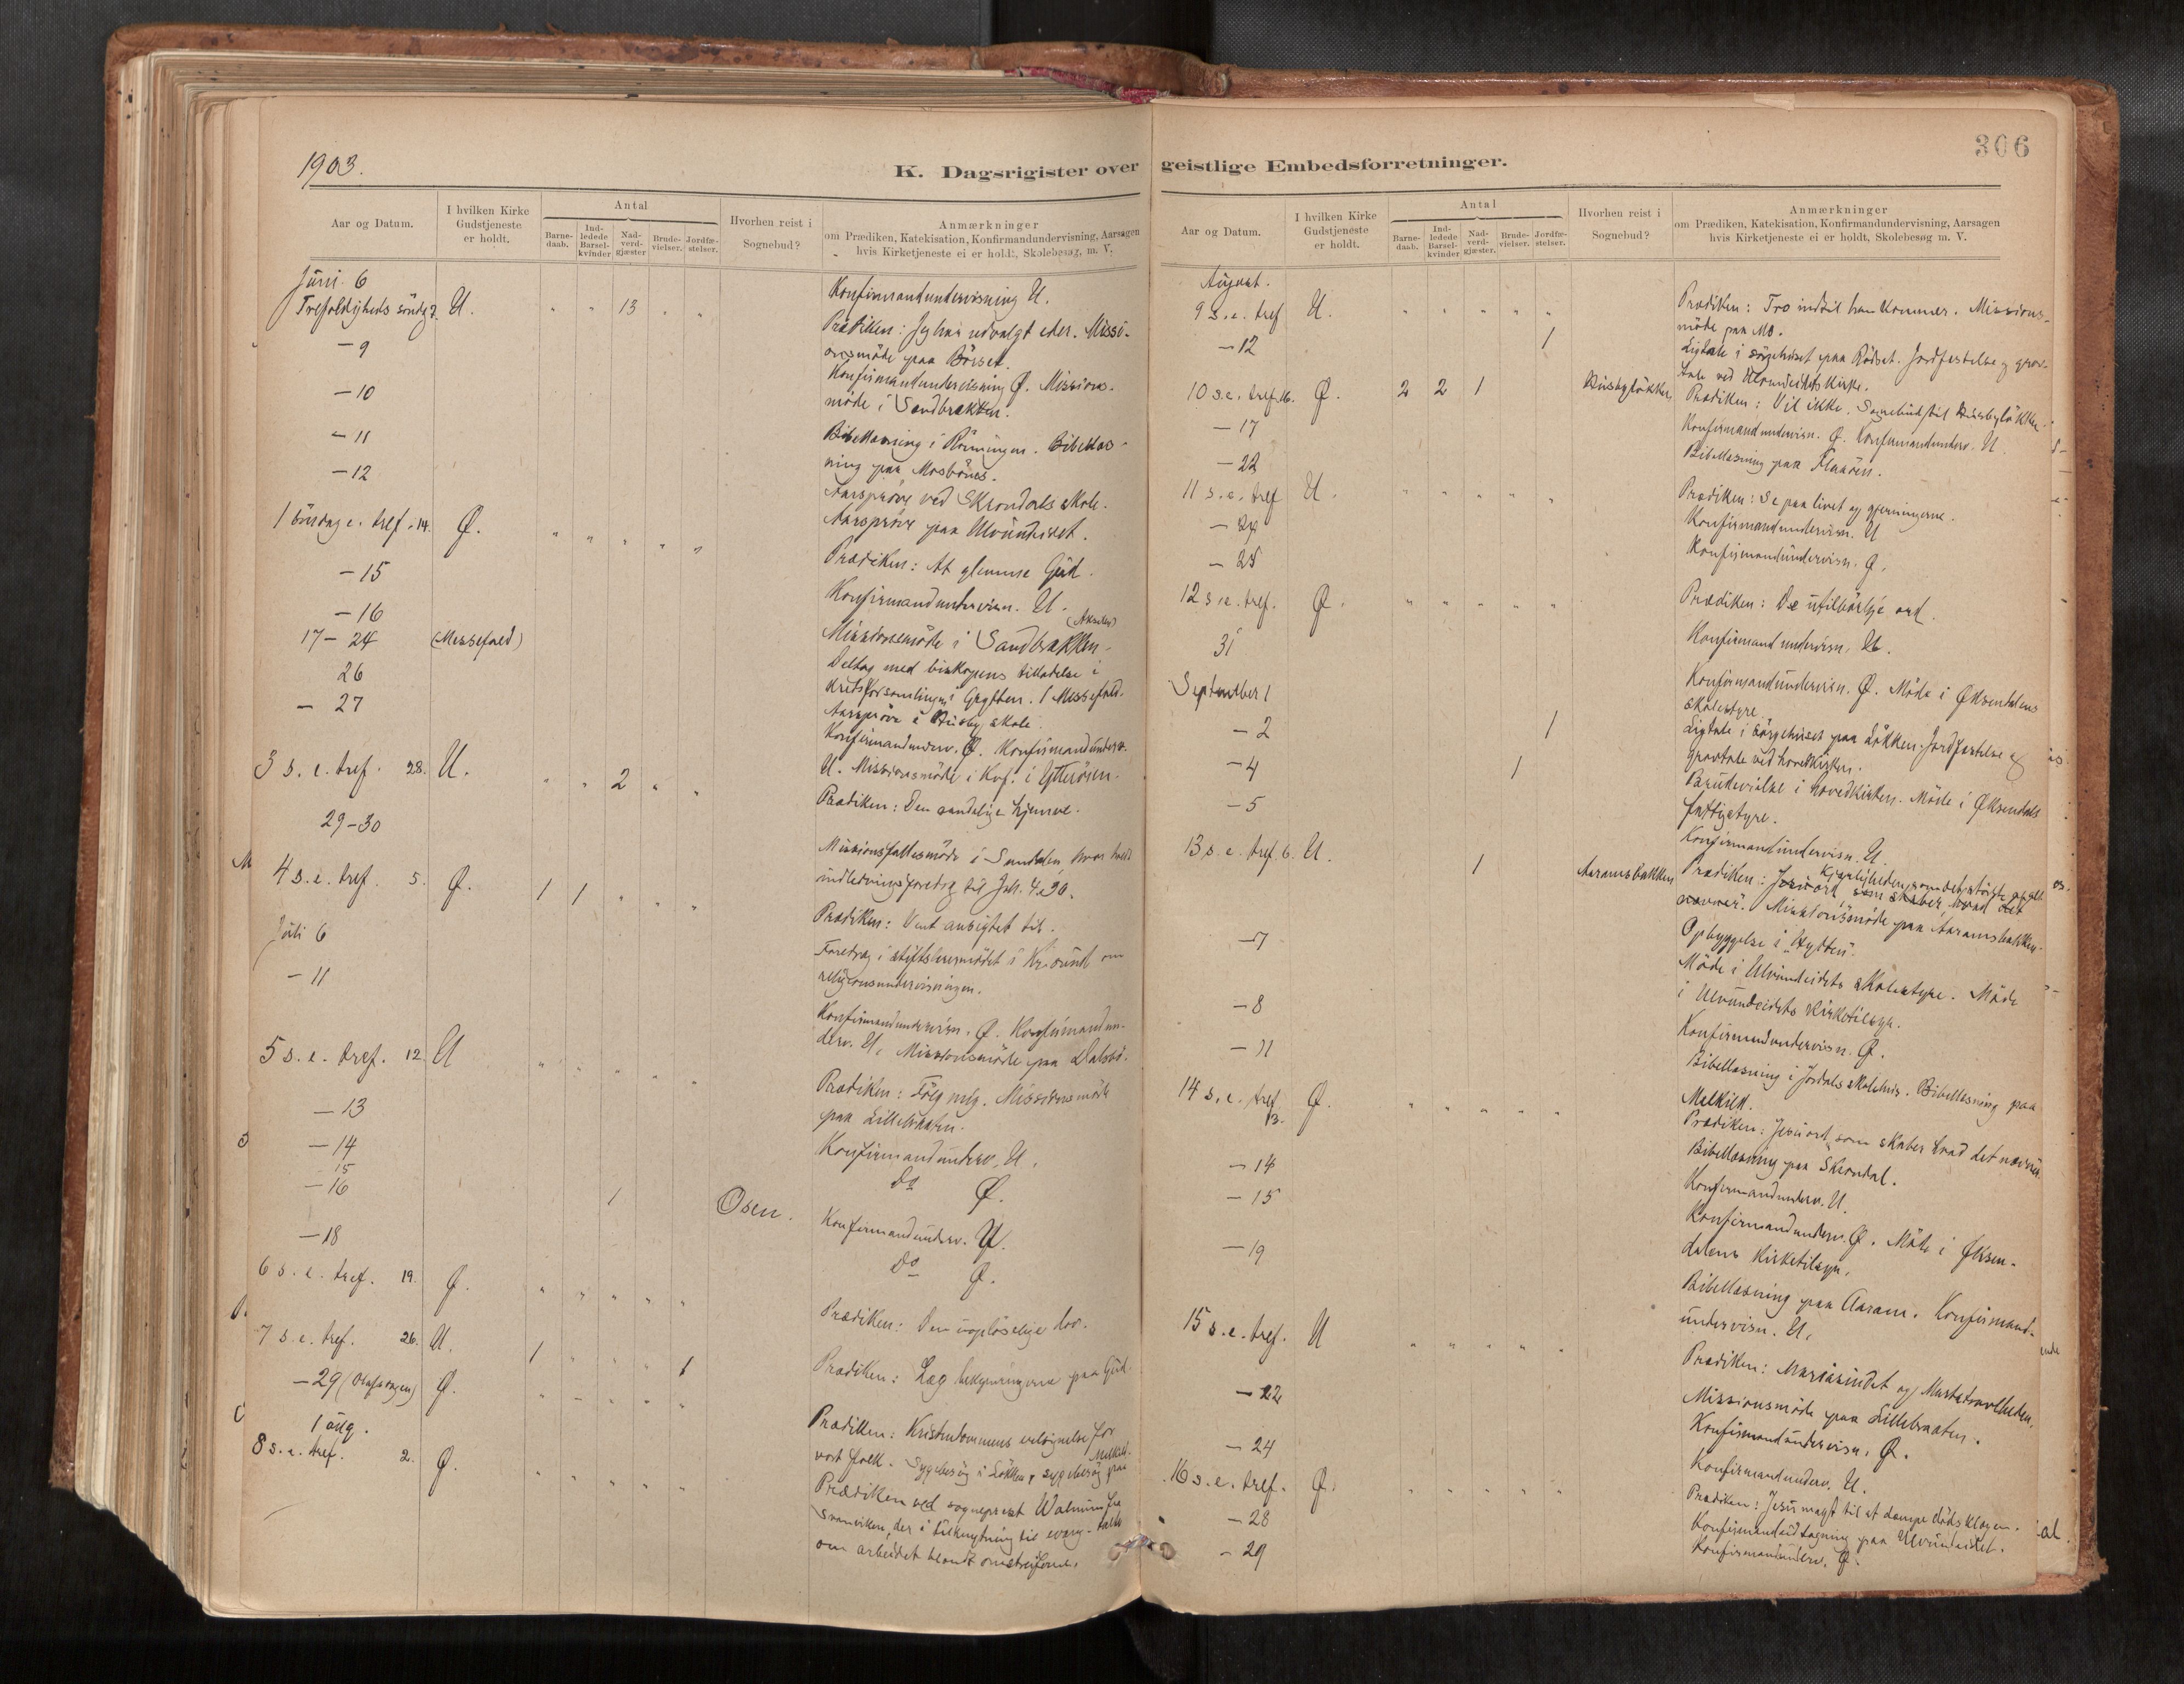 1903.
K. Dagsrigister over
Aar og Datum.
I hvilken Kirke
Gudstjeneste
er holdt.
Antal
Barne-
daab.
Ind-
ledede
Barsel-
kvinder
Nad-
verd-
gjæster
Brude-
vielser.
Jordfæ-
stelser.
Hvorhen reist i
Sognebud?
Anmærkninger
om Prædiken, Katekisation, Konfirmandundervisning, Aarsagen
hvis Kirketjeneste ei er holdt, Skolebesøg, m. V.
Juni 6
Konfirmandundervisning U.
Trefoldigheds søndg 7. U. " " 13 " "
Prædiken: Jeg har udvalgt eder. Missi-
onsmöde paa Börset.
- 9
Konfirmandundervisning Ø. Missions-
möde i Sandbrækken.
- 10
Bibellæsning i Rönningen. Bibellæs-
ning paa Mosbönes.
- 11
Aarspröve ved Skrondals skole.
- 12
Aarspröve paa Ulvundeidet.
1 Söndag e. tref. 14. Ø. " " " " "
Prædiken: At glemme Gud.
- 15
Konfirmandundervisn. U.
- 16
Missionsmöde i Sandbrækken.
17 - 24 (Messefald)
Deltog med biskopens tilladelse i
kredsforsamlingen i . 1 Messefald.
26
Aarspröve i Husby skole
- 27
Konfirmandunderv. Ø. Konfirmandunderv.
U. Missionsmöde i Kvf. i Ytterösen.
3 s. e. tref. 28. U. " " 2 " "
Prædiken: Den aandelige hjemve.
29-30
Missionsfællesmöde i Sundalen hvor holdt
indledningsforedrag til Joh. 4.
4 s. e. tref. 5. Ø. 1 1 " " "
Prædiken: Vent ansigtet til.
Juli 6
Foredrag i stiftslærermödet i Kr.sund om
religionsundervisningen.
- 11
Konfirmandundervisn. Ø. Konfirmandun-
derv. U. Missionsmöde paa Dalsbö.
5 s. e. tref. 12. U " " " " "
Prædiken: Fölg mig. Missionsmöde
paa Lillebraaten.
- 13
Konfirmandunderv. U.
- 14
do Ø.
- 15
- 16 1 Osen.
Konfirmandunderv. U.
- 18
do Ø.
6 s. e. tref. 19. Ø. " " " " "
Prædiken: Den uoplöselige lov.
7 s. e. tref. 26. U. 1 " " " 1
Prædiken: Læg bekymringerne paa Gud.
- 29 (Olafsdagen) Ø. " " " " "
Prædiken: Kristendommens velsignelse for
vort folk.
1 aug.
Sygebesög i Lökken, sygebesög paa Melkild.
8 s. e. tref. 2. Ø. " " " " "
Prædiken ved sogneprest Walnum fra
Svanviken, der i tilknytning til evang. talte
om arbeidet blandt omstreiferne.
306
geistlige Embedsforretninger.
Aar og Datum.
I hvilken Kirke
Gudstjeneste
er holdt.
Antal
Barne-
daab.
Ind-
ledede
Barsel-
kvinder
Nad-
verd-
gjæster.
Brude-
vielser.
Jordfæ-
stelser.
Hvorhen reist i
Sognebud?
Anmærkninger
om Prædiken, Katekisation, Konfirmandundervisning, Aarsagen
hvis Kirketjeneste ei er holdt, Skolebesøg m. V.
August.
9 s. e. tref U. " " " " "
Prædiken: Tro indtil han kommer. Missions-
möde paa Mo.
- 12 1
Ligtale i sörgehuset paa Rödset. Jordfestelse og grav-
tale ved Ulvundeidets kirke.
10 s. e. tref. 16. Ø. 2 2 1 Husbylökken
Prædiken: Vil ikke. Sognebud til Husbylökken.
- 17
Konfirmandundervisn. Ø. Konfirmandunderv. U.
- 22
Bibellæsning paa Flaaöien.
11 s. e. tref U. " " " " "
Prædiken: Se paa livet og gjerningerne.
- 24
Konfirmandundervisn. U
- 25
Konfirmandundervisn. Ø.
12 s. e. tref. Ø. " " " " "
Prædiken: De utilbörlige ord.
31
Konfirmandundervisn. U.
September 1
Konfirmandundervisn. Ø. Möde i Øksendalens
skolestyre.
- 2 1
Ligtale i sörgehuset paa Lökken. Jordfestelse og
gravtale ved hovedkirken.
- 4 1
Brudevielse i hovedkirken. Möde i Øksendals
fattigstyre.
- 5
Konfirmandundervisn. U.
13 s. e. tref. 6. U. 1 Aaramsbakken
Prædiken: Kjærligheden som det störste af alt
Jesu ord, som skaber, hvad det
nævner. Missionsmöde paa Aaramsbakken.
- 7
Opbyggelse i Hytten.
Möde i Ulvundeidets skolestyre. Möde
i Ulvundeidets kirketilsyn.
- 8
Konfirmandundervisn. Ø.
- 11
Bibellæsning i Jordals skolehus. Bibellæsning paa
Melkild.
14 s. e. tref 13. Ø. " " " " "
Prædiken: Jesu ord, som skaber hvad det nævner.
Bibellæsning paa Skrondal.
- 14
Konfirmandunderv. U.
- 15
Konfirmandunderv. Ø. Möte i Øksen-
dalens kirketilsyn.
- 19
Bibellæsning paa Aaram. Konfirmand-
undervisn. U.
15 s. e. tref. U " " " " "
Prædiken: Mariasindet og Martatravlheden.
Missionsmöde paa Lillebraaten.
- 22
Konfirmandundervisn. Ø.
- 24
Konfirmandunderv. U.
16 s. e. tref. Ø. " " " " "
Prædiken: Jesu magt til at dæmpe dödsklagen.
- 28
Konfirmandudtagning paa Ulvundeidet.
- 29
Konfirmandunderv. Ø.